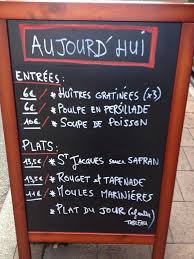 AUJOURD'HUI
ENTRÉES:
6€ / * HUÎTRES GRATINÉES (x3)
6€ / * POULPE EN PERSILLADE
10€ / * SOUPE DE POISSON
PLATS:
13,5€ / * ST JACQUES SAFRAN
13,5€ / * ROUGET ET TAPENADE
11€ / * MOULES MARINIÈRES
* PLAT DU JOUR
TABLEAU